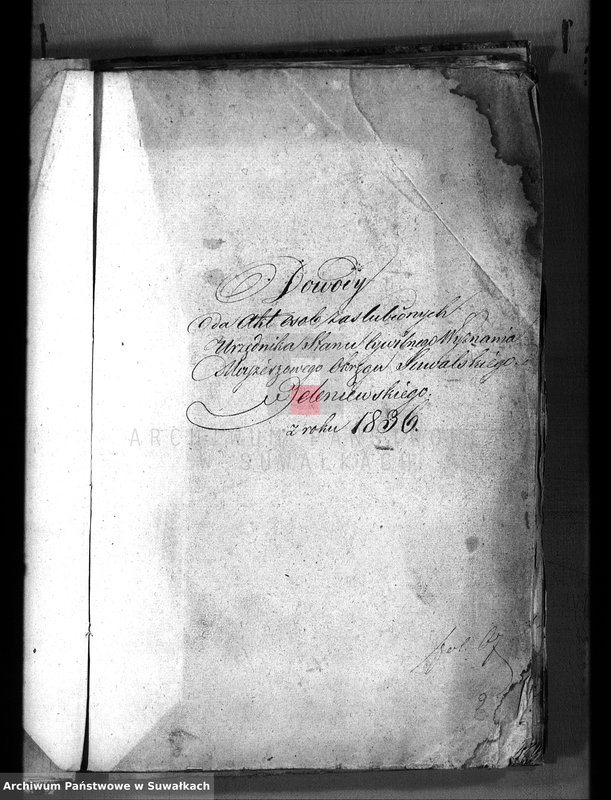 Dowody
da Akt osob zaslubionych
Urzędnika Stanu Cywilnego Wyznania
Mojżeszowego Okręgu Suwalskiego
Jeleniewskiego.
z roku 1836.
ARCHIWUM PAŃSTWOWE
W SUWAŁKACH
Archiwum Państwowe w Suwałkach